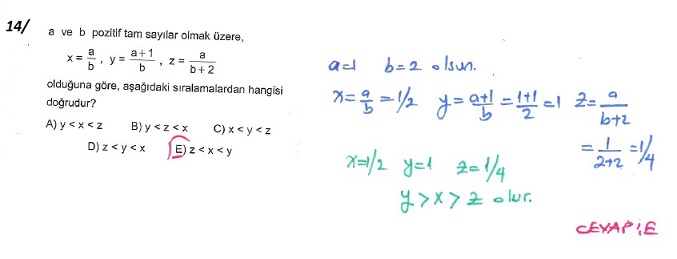 14/
a ve b pozitif tam sayılar olmak üzere,
x = a/b , y = a+1/b , z = a/b+2
olduğuna göre, aşağıdaki sıralamalardan hangisi
doğrudur?
A) y < x < z B) y < z < x C) x < y < z
D) z < y < x E) z < x < y
a=1 b=2 olsun.
x = a/b = 1/2 y = a+1/b = 1+1/2 = 1 z = a/b+2
= 1/2+2 = 1/4
x=1/2 y=1 z=1/4
y > x > z olur.
CEVAP: E